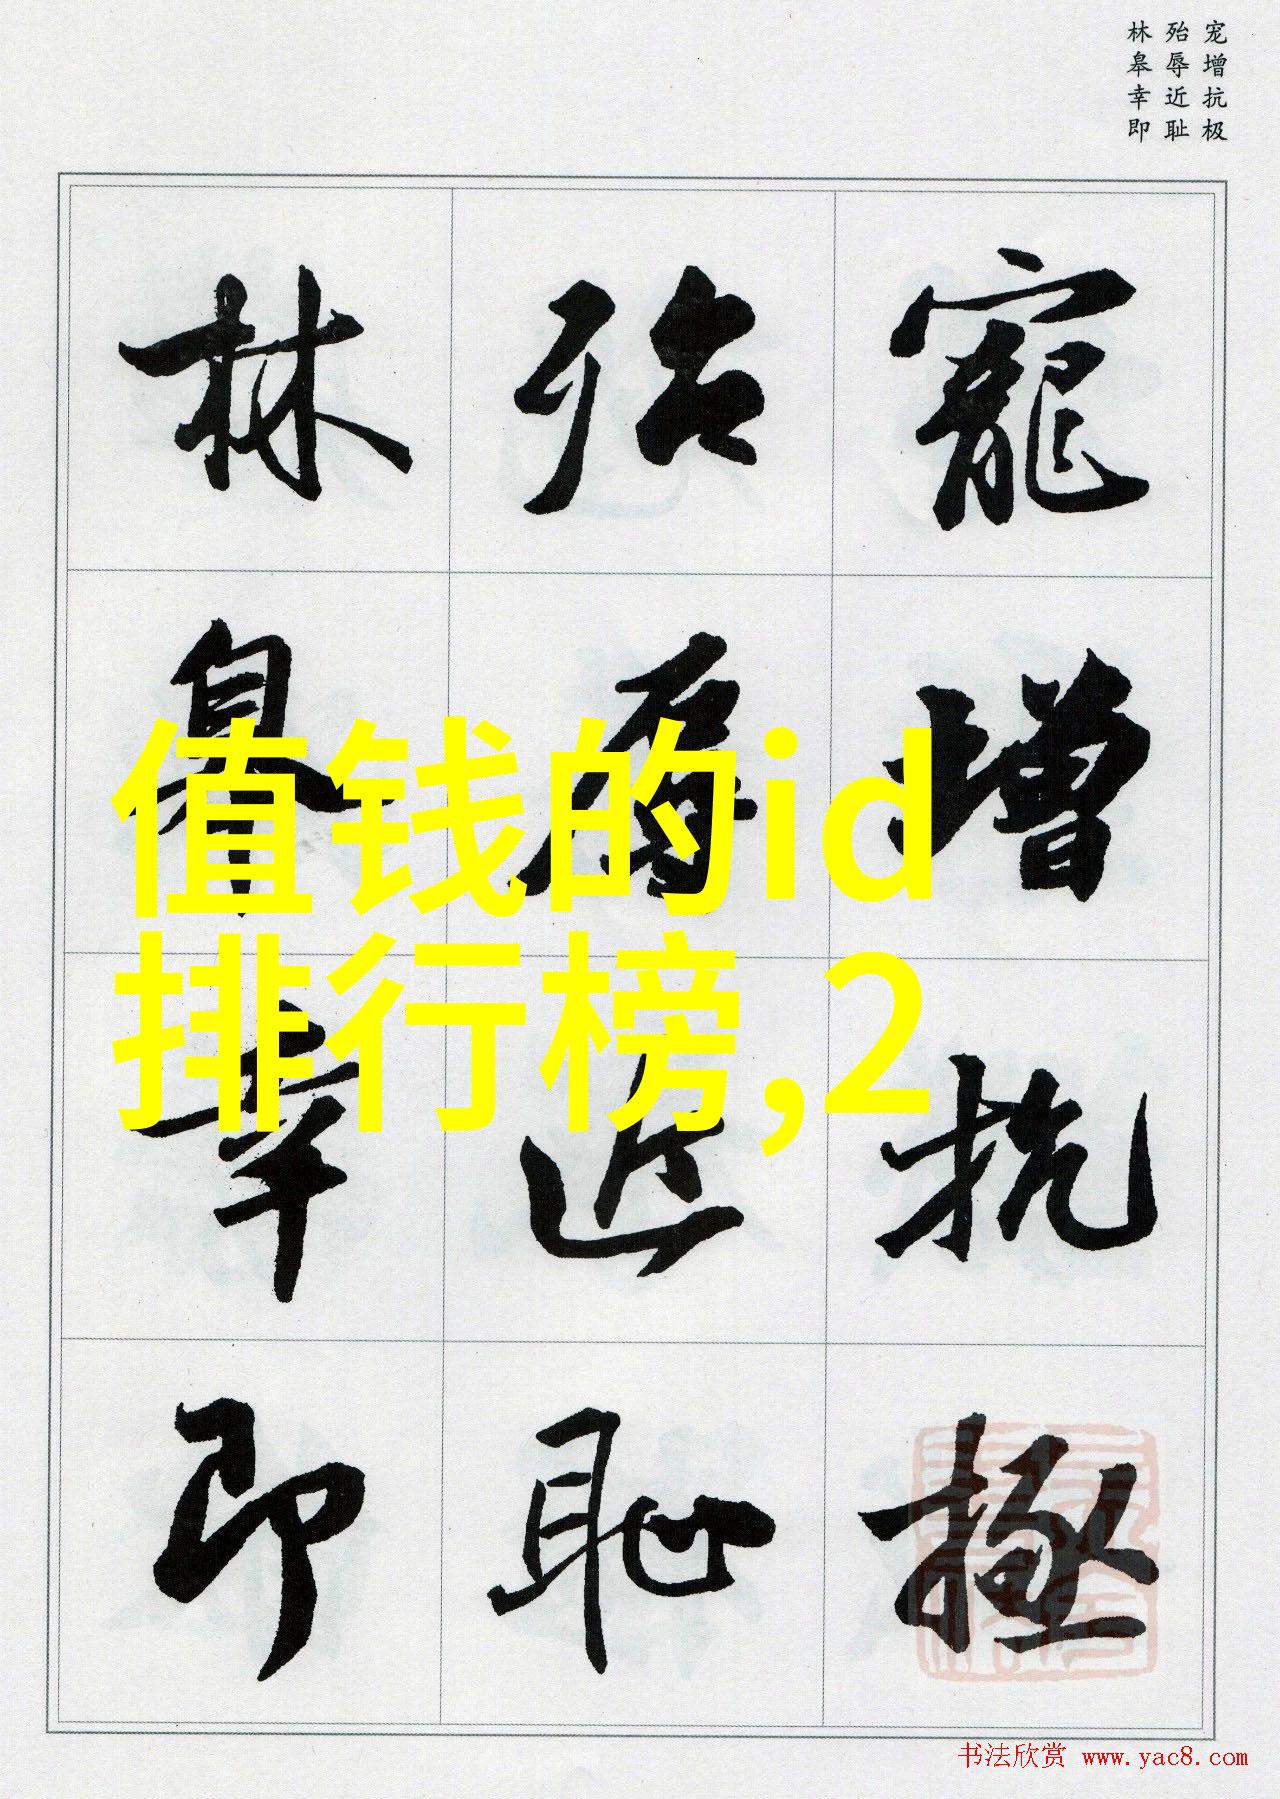 宠增抗极
殆辱近耻
林皋幸即
寵增抗極
殆辱近恥
林皋幸即
值钱的id
排行榜,2
书法欣赏 www.yac8.com